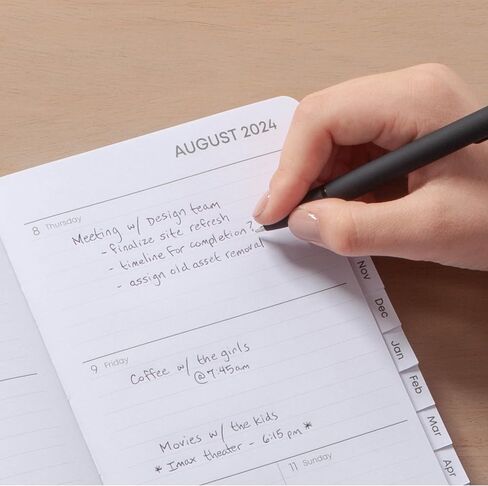 AUGUST 2024
8 Thursday
Meeting w/ Design team
- finalize site refresh
- timeline for completion?
- assign old asset removal
9 Friday
Coffee w/ the girls
@7:45am
Movies w/ the kids
* Imax theater - 6:15 pm *
11 Sunday
Nov
Dec
Jan
Feb
Mar
Apr